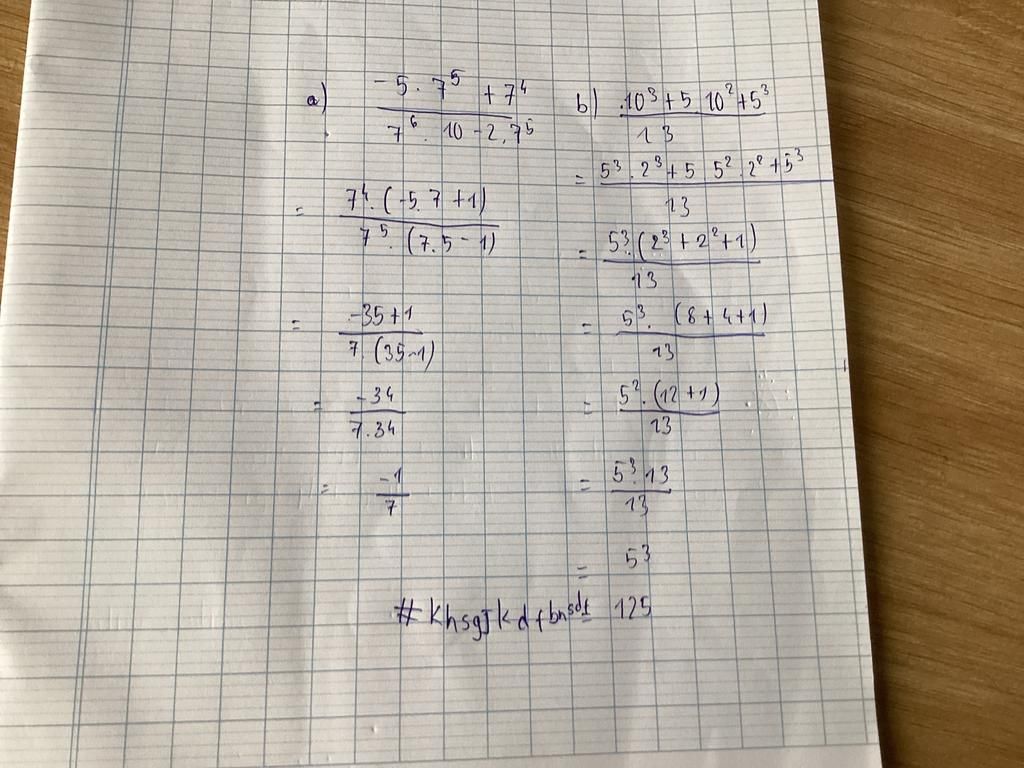 a) \frac{-5 . 7^5 + 7^4}{7^6 . 10 - 2 . 7^5}
= \frac{7^4 . (-5 . 7 + 1)}{7^5 . (7 . 5 - 1)}
= \frac{-35 + 1}{7 . (35 - 1)}
= \frac{-34}{7 . 34}
= \frac{-1}{7}
b) \frac{.10^3 + 5 10^2 + 5^3}{13}
= \frac{5^3 . 2^3 + 5 5^2 . 2^2 + 5^3}{13}
= \frac{5^3 . (2^3 + 2^2 + 1)}{13}
= \frac{5^3 . (8 + 4 + 1)}{13}
= \frac{5^2 . (12 + 1)}{13}
= \frac{5^3 . 13}{13}
= 5^3
= 125